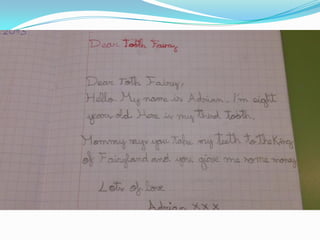 2015
Dear Tooth Fairy
Dear Toth Fairy,
Hello. My name is Adrian. I'm eight
years old. Here is my third tooth.
Mommy says you take my teeth to the King
of Fairyland and you give me some money
Lots of love
Adrian X X X